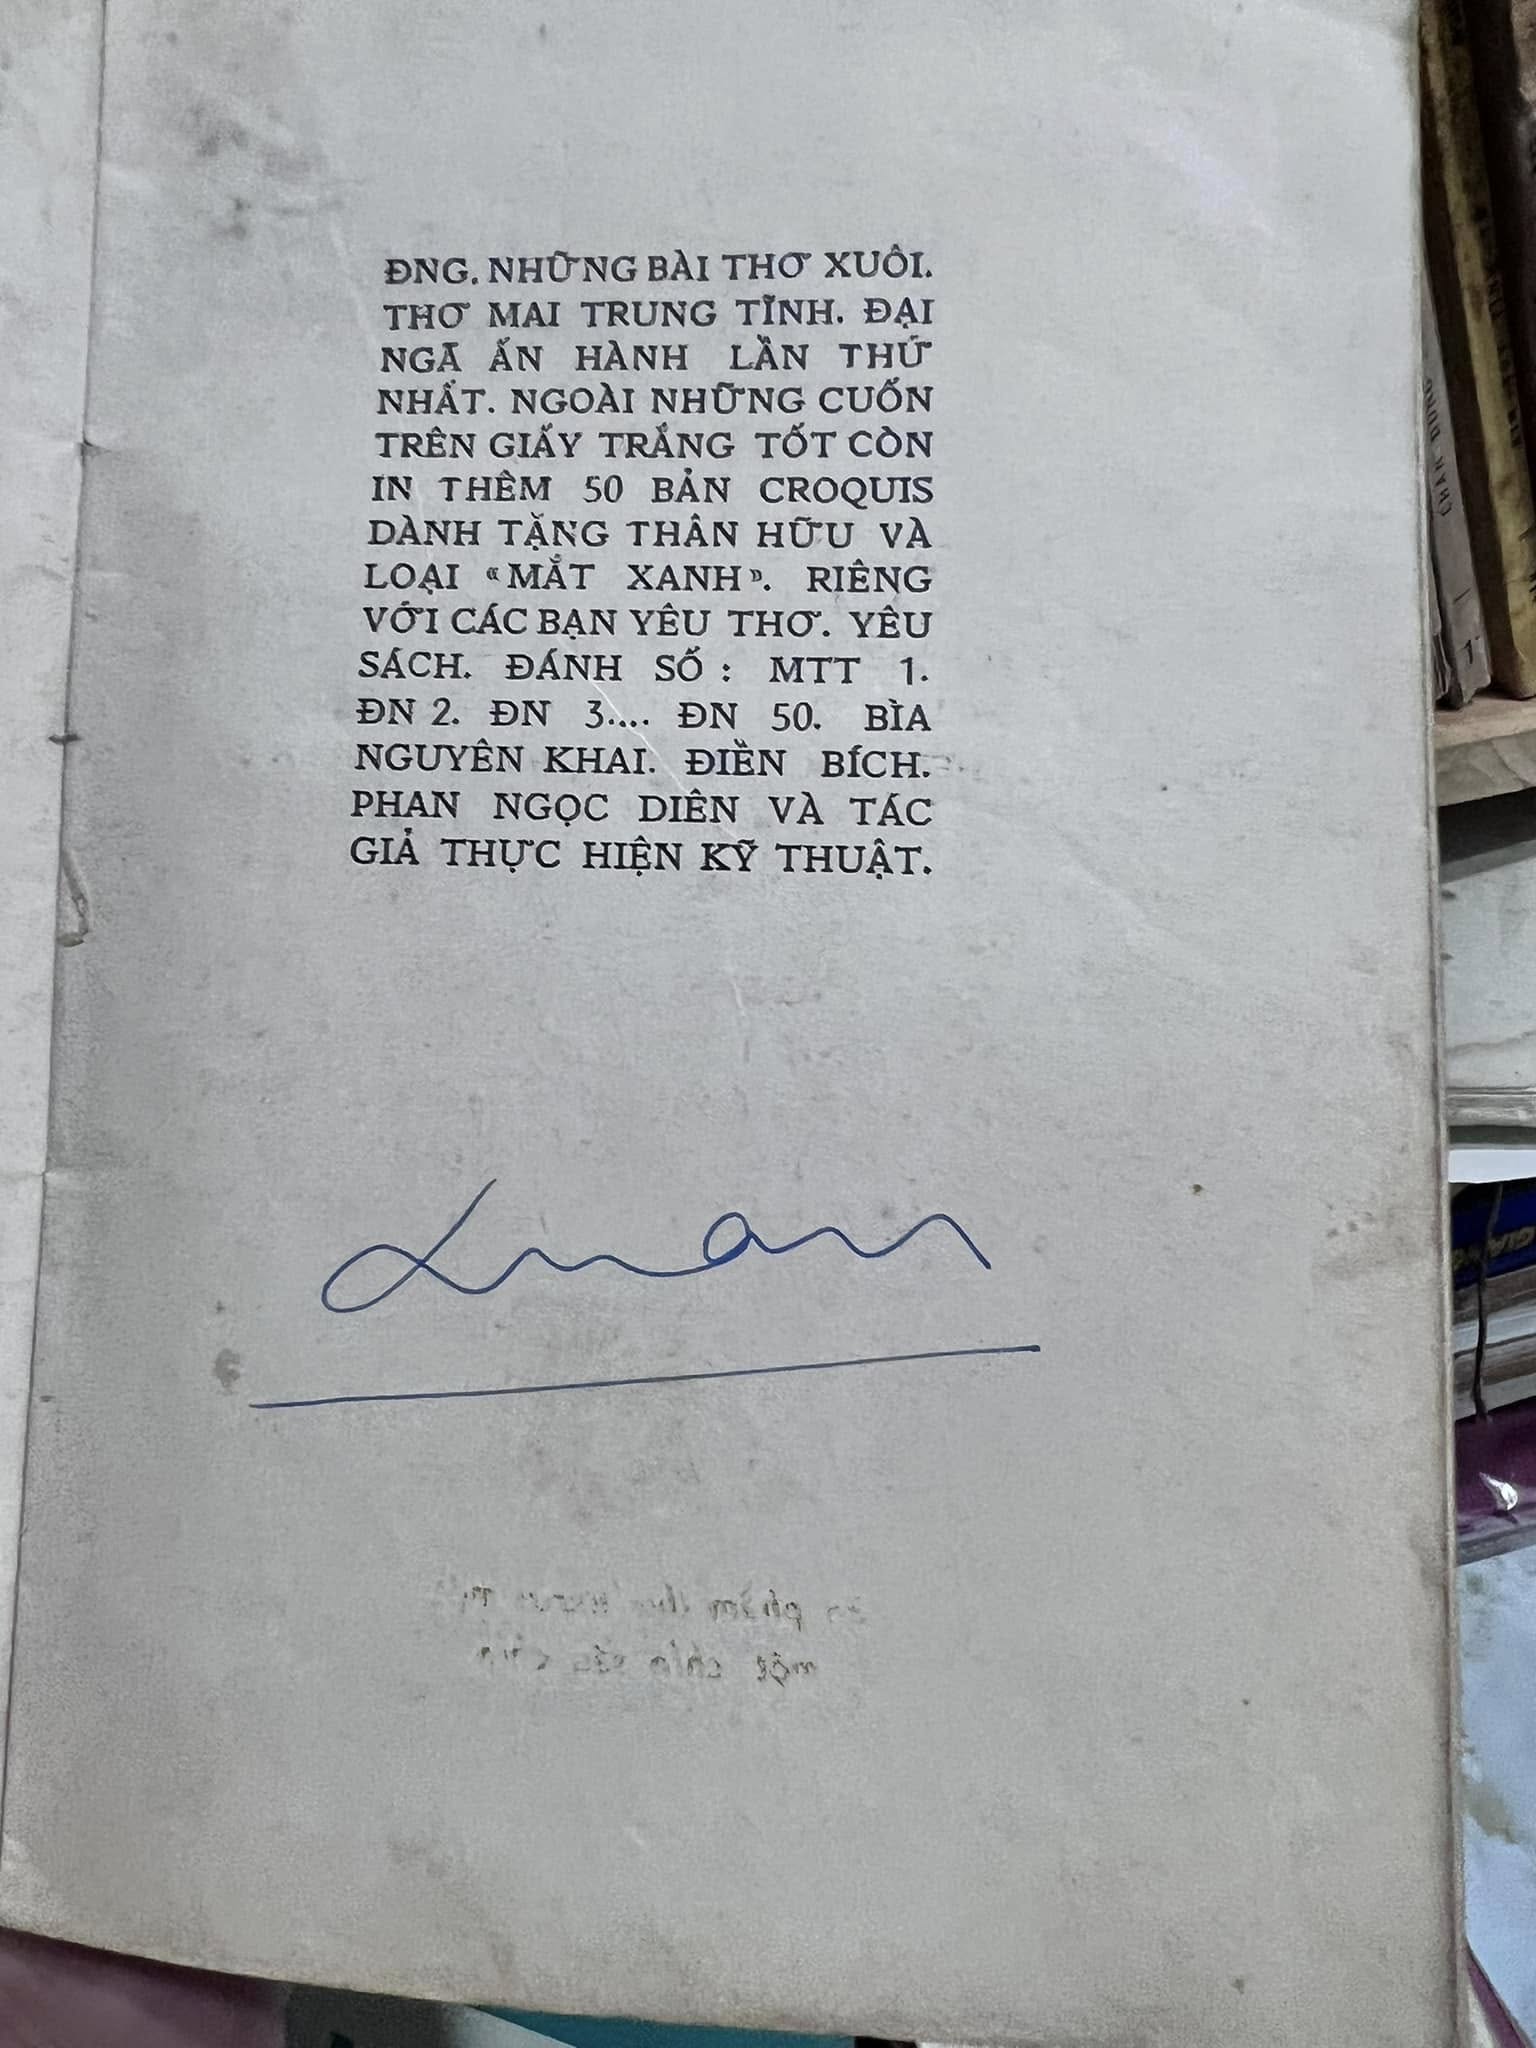 ĐNG. NHỮNG BÀI THƠ XUÔI.
THƠ MAI TRUNG TĨNH. ĐẠI
NGÃ ẤN HÀNH LẦN THỨ
NHẤT. NGOÀI NHỮNG CUỐN
TRÊN GIẤY TRẮNG TỐT CÒN
IN THÊM 50 BẢN CROQUIS
DÀNH TẶNG THÂN HỮU VÀ
LOẠI «MẮT XANH». RIÊNG
VỚI CÁC BẠN YÊU THƠ. YÊU
SÁCH. ĐÁNH SỐ : MTT 1.
ĐN 2. ĐN 3.... ĐN 50. BÌA
NGUYÊN KHAI. ĐIỀN BÍCH.
PHAN NGỌC DIÊN VÀ TÁC
GIẢ THỰC HIỆN KỸ THUẬT.